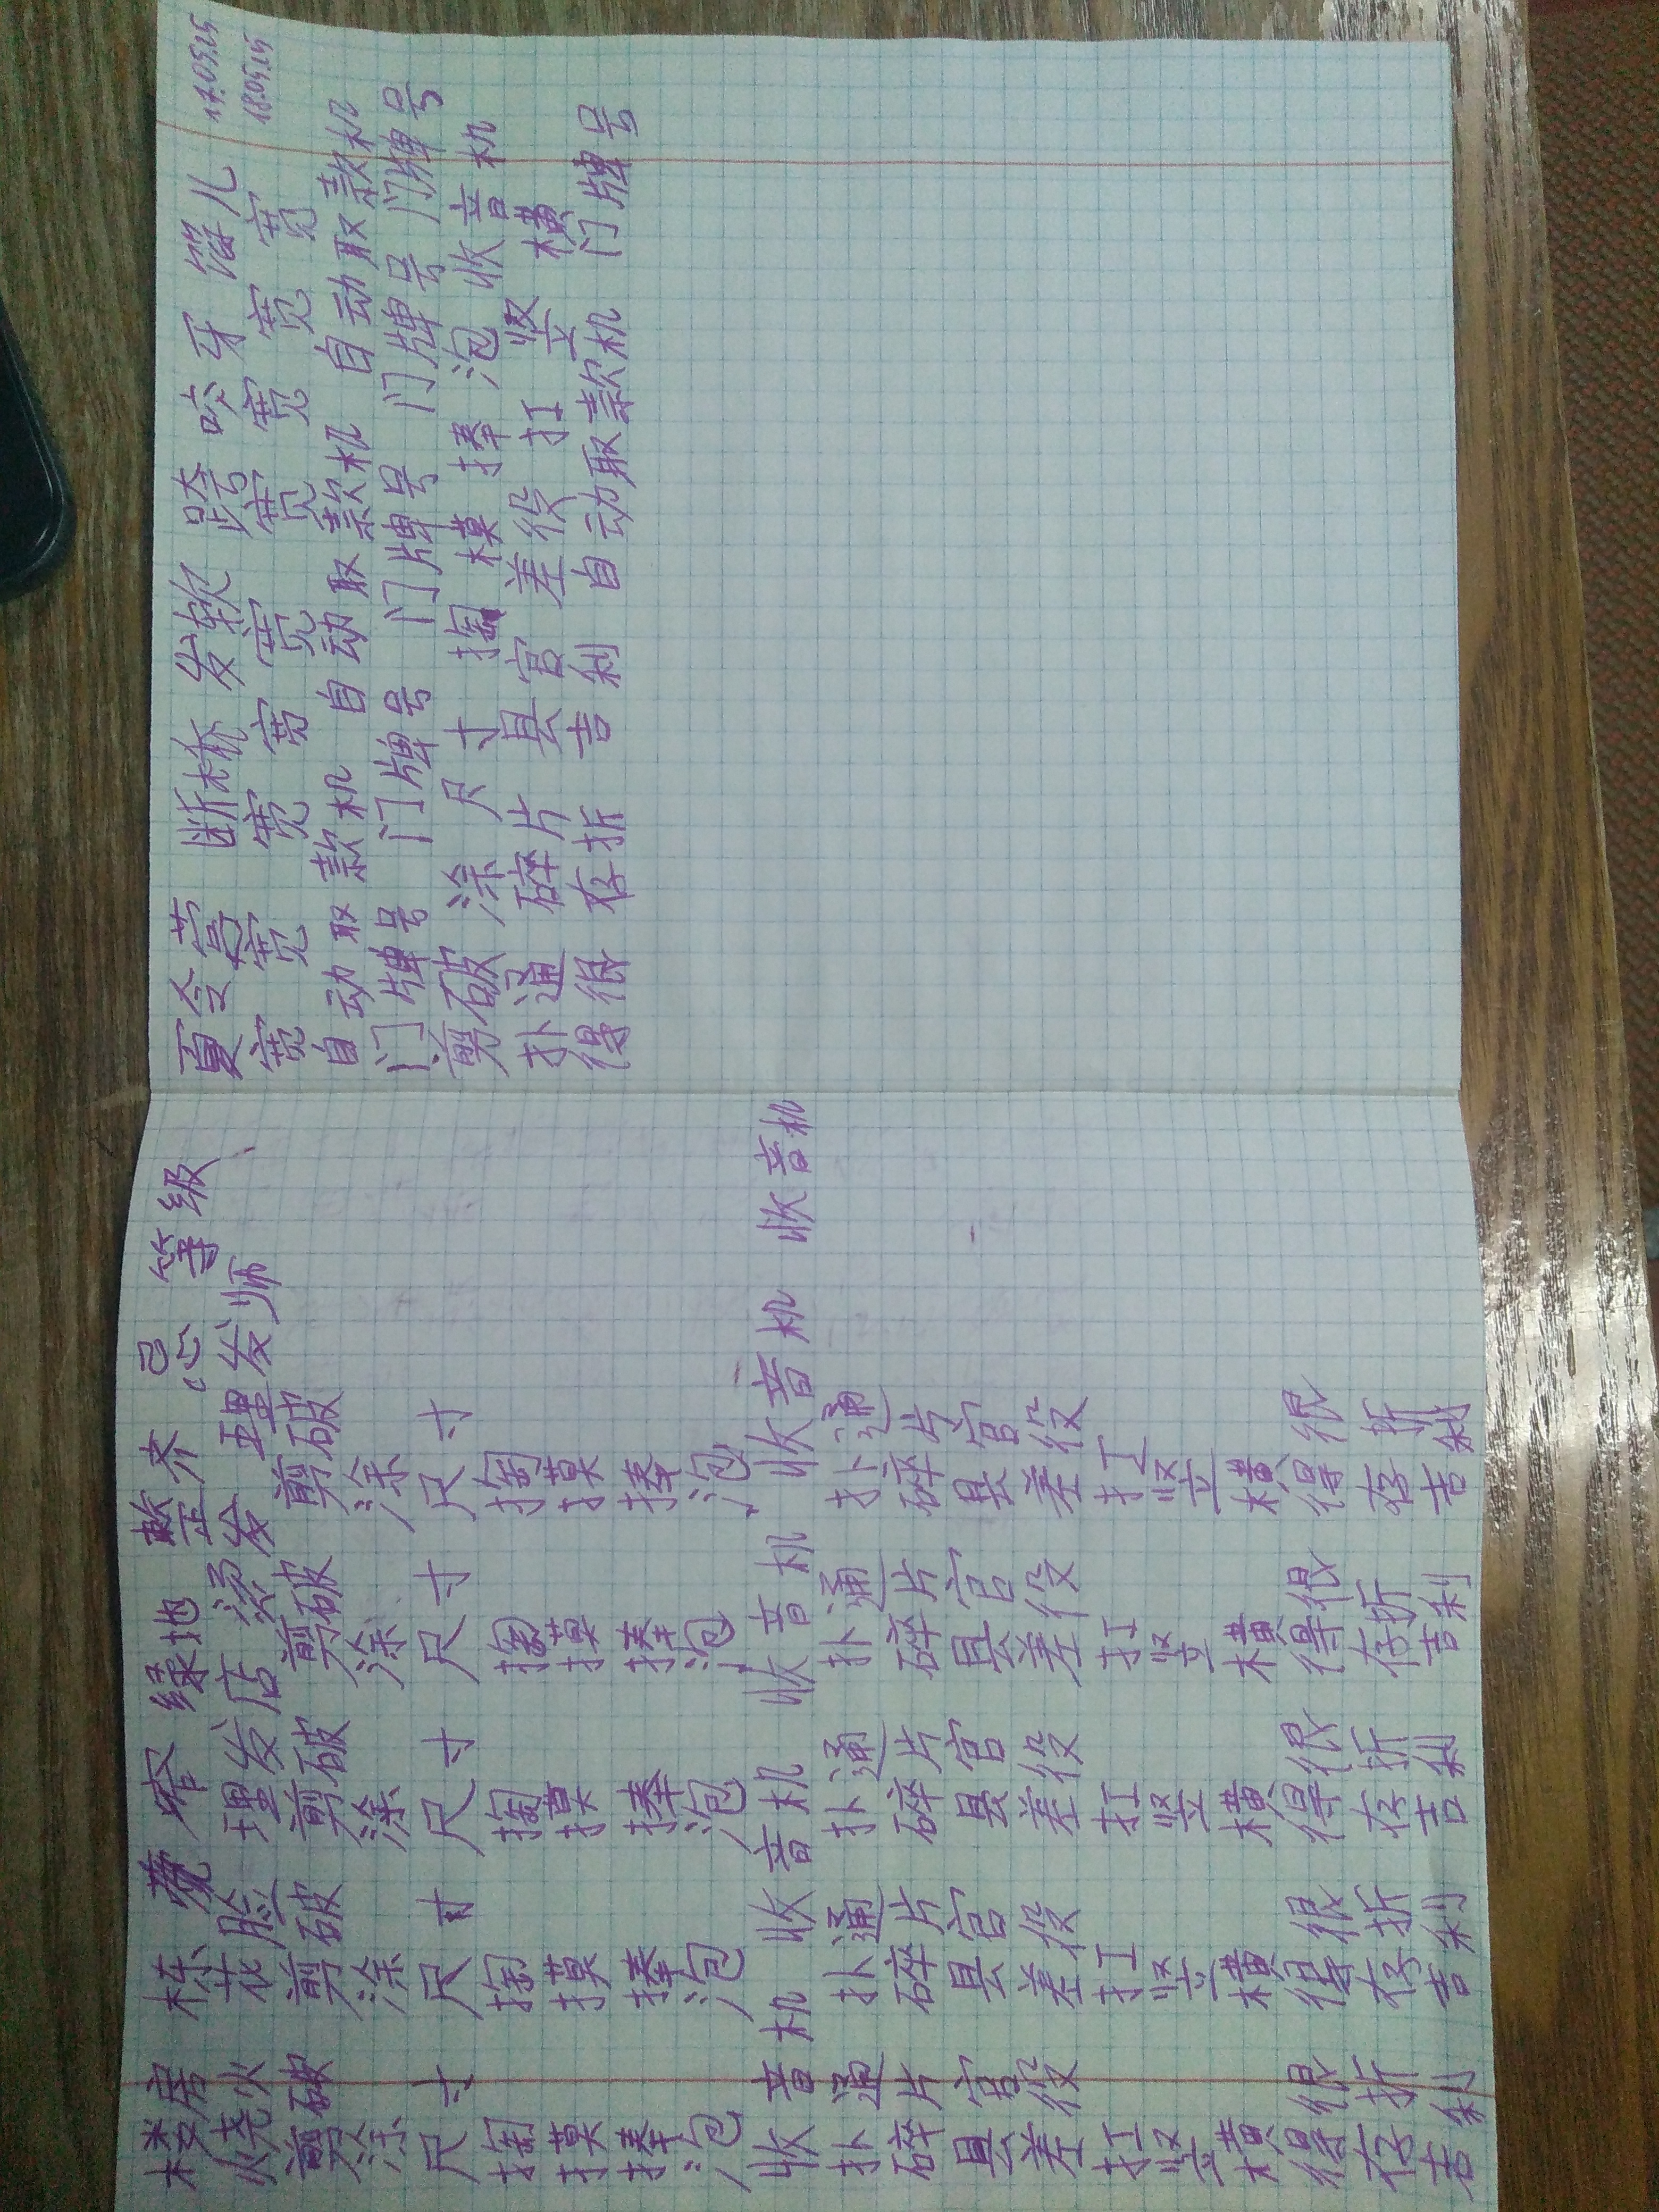 楼房 栋 窄 绿地 整齐 等级
烧火 花脸 理发店 烫发 理发师
剪破 剪破 剪破 剪破 剪破
涂 涂 涂 涂 涂
尺寸 尺寸 尺寸 尺寸 尺寸
掏 掏 掏 掏 掏
摸 摸 摸 摸 摸
捧 捧 捧 捧 捧
泡 泡 泡 泡 泡
收音机 收音机 收音机 收音机 收音机
扑通 扑通 扑通 扑通 扑通
碎片 碎片 碎片 碎片 碎片
县官 县官 县官 县官 县官
差役 差役 差役 差役 差役
扛 扛 扛 扛 扛
竖 竖 竖 竖 竖
横 横 横 横 横
得很 得很 得很 得很 得很
存折 存折 存折 存折 存折
吉利 吉利 吉利 吉利 吉利
17.05.25
18.05.25
夏令营 断桥 发软 跨 咬牙
宽 宽 宽 宽 宽 宽 宽 宽 宽
自动取款机 自动取款机 自动取款机
门牌号 门牌号 门牌号 门牌号 门牌号
剪破 涂 尺寸 掏 摸 捧 泡 收音机
扑通 碎片 县官 差役 扛 竖 横
得很 存折 吉利 自动取款机 门牌号